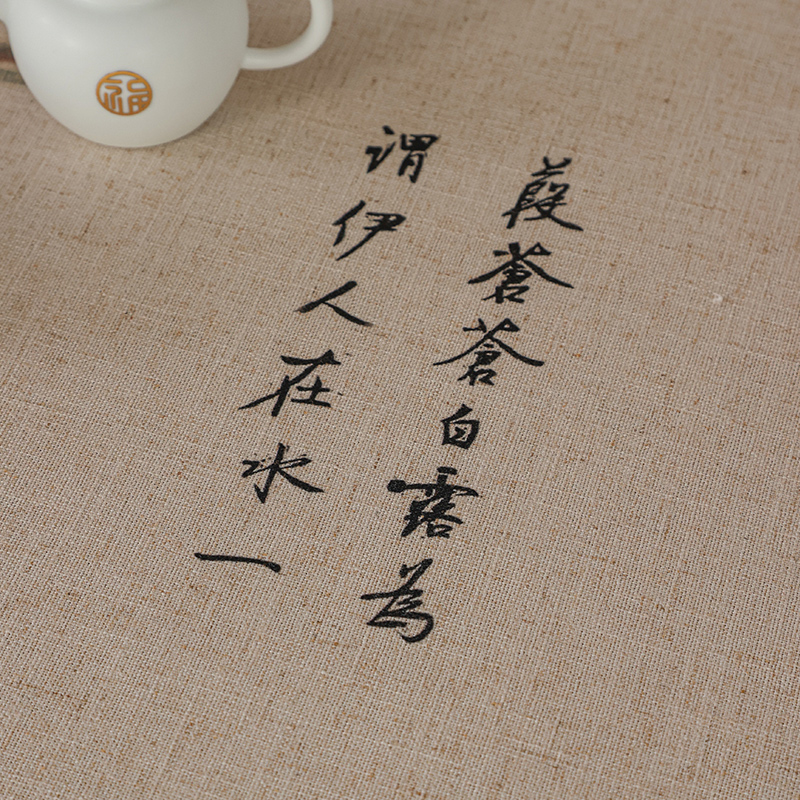 葭蒼蒼白露為
谓伊人在水一
福